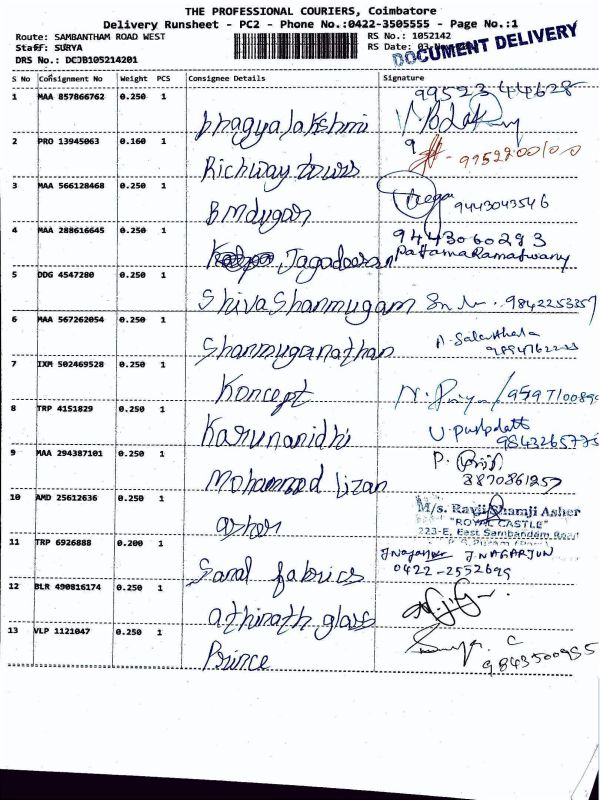 THE PROFESSIONAL COURIERS, Coimbatore
Delivery Runsheet - PC2 - Phone No.:0422-3505555 - Page No.:1
Route: SAMBANTHAM ROAD WEST
RS No.: 1052142
Staff: SURYA
RS Date: 03
DOCUMENT DELIVERY
DRS No.: DCJB105214201
S No Consignment No Weight PCS Consignee Details Signature
1 MAA 857866762 0.250 1 bhagyalakshmi 9952344628
2 PRO 13945063 0.160 1 Richway towrs
3 MAA 566128468 0.250 1 B mdugar 9443043546
4 MAA 288616645 0.250 1 Jagadeesan 9443060293
5 DDG 4547280 0.250 1 Shiva Shanmugam 9842253357
6 MAA 567262054 0.250 1 Shanmuganathan
7 IXM 502469528 0.250 1 Koncept
8 TRP 4151829 0.250 1 Karunanidhi
9843265775
9 MAA 294387101 0.250 1 Mohammed lizan P.
3870861257
10 AMD 25612636 0.250 1 asher M/s. Ravji Shamji Asher
"ROYAL CASTLE"
223-E, East Sambandam Road
11 TRP 6926888 0.200 1 Saral fabrics J. NAGARJUN
0422-2552699
12 BLR 490816174 0.250 1 athinath glass
13 VLP 1121047 0.250 1 Prince
9843500985